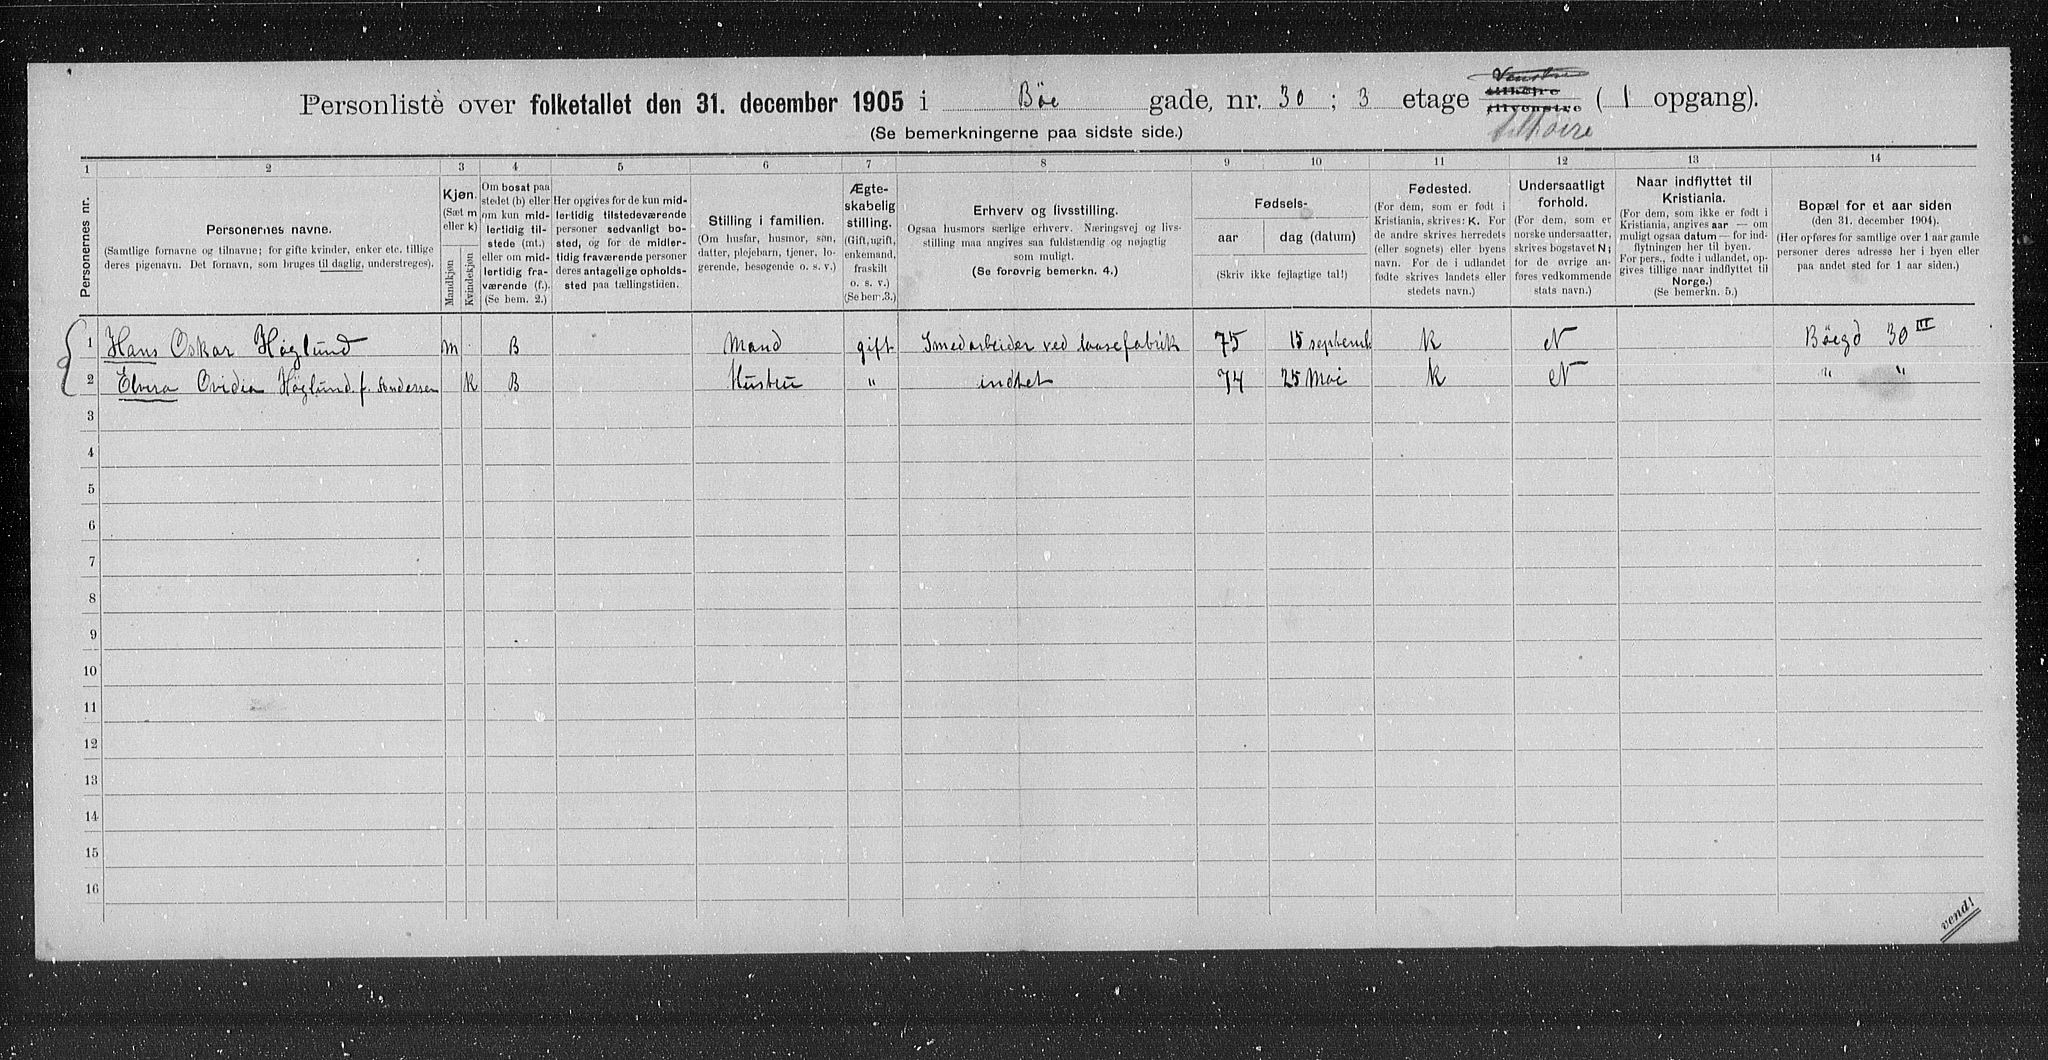 Venstre
Personliste over folketallet den 31. december 1905 i Bøe gade, nr. 30 ; 3 etage tilhøire tilvenstre ( 1 opgang).
(Se bemerkningerne paa sidste side.)
tilhøire
1 2 3 4 5 6 7 8 9 10 11 12 13 14
Personernes nr.
Personernes navne.
(Samtlige fornavne og tilnavne; for gifte kvinder, enker etc. tillige
deres pigenavn. Det fornavn, som bruges til daglig, understreges).
Kjøn.
(Sæt m
eller k)
Mandkjøn
Kvindekjøn
Om bosat paa
stedet (b) eller
om kun mid-
lertidig til-
stede (mt.)
eller om mid-
lertidig fra-
værende (f.).
(Se bem. 2.)
Her opgives for de kun mid-
lertidig tilstedeværende
personer sedvanligt bo-
sted, og for de midler-
tidig fraværende personer
deres antagelige opholds-
sted paa tællingstiden.
Stilling i familien.
(Om husfar, husmor, søn,
datter, plejebarn, tjener, lo-
gerende, besøgende o. s. v.)
Ægte-
skabelig
stilling.
(Gift, ugift,
enkemand,
fraskilt
o. s. v.)
(Se bem.3.)
Erhverv og livsstilling.
Ogsaa husmors særlige erhverv. Næringsvej og livs-
stilling maa angives saa fuldstændig og nøjagtig
som muligt.
(Se forøvrig bemerkn. 4.)
Fødsels-
aar dag (datum)
(Skriv ikke fejlagtige tal!)
Fødested.
(For dem, som er født i
Kristiania, skrives: K. For
de andre skrives herredets
(eller sognets) eller byens
navn. For de i udlandet
fødte skrives landets eller
stedets navn.)
Undersaatligt
forhold.
(For dem, som er
norske undersaatter,
skrives bogstavet N;
for de øvrige an-
føres vedkommende
stats navn.)
Naar indflyttet til
Kristiania.
(For dem, som ikke er født i
Kristiania, angives aar — om
muligt ogsaa datum — for ind-
flytningen her til byen.
For pers., fødte i udlandet, op-
gives tillige naar indflyttet til
Norge.)
(Se bemerkn. 5.)
Bopæl for et aar siden
(den 31. december 1904).
(Her opføres for samtlige over 1 aar gamle
personer deres adresse her i byen eller
paa andet sted for 1 aar siden.)
1 Hans Oskar Høglund m B Mand gift Smedarbeider ved laasefabrik 75 15 septemb. K N Bøegd 30 III
2 Elvira Ovidia Høglund f. Andersen K B Hustru " indtet 74 25 Mai K N " "
3
4
5
6
7
8
9
10
11
12
13
14
15
16
vend!